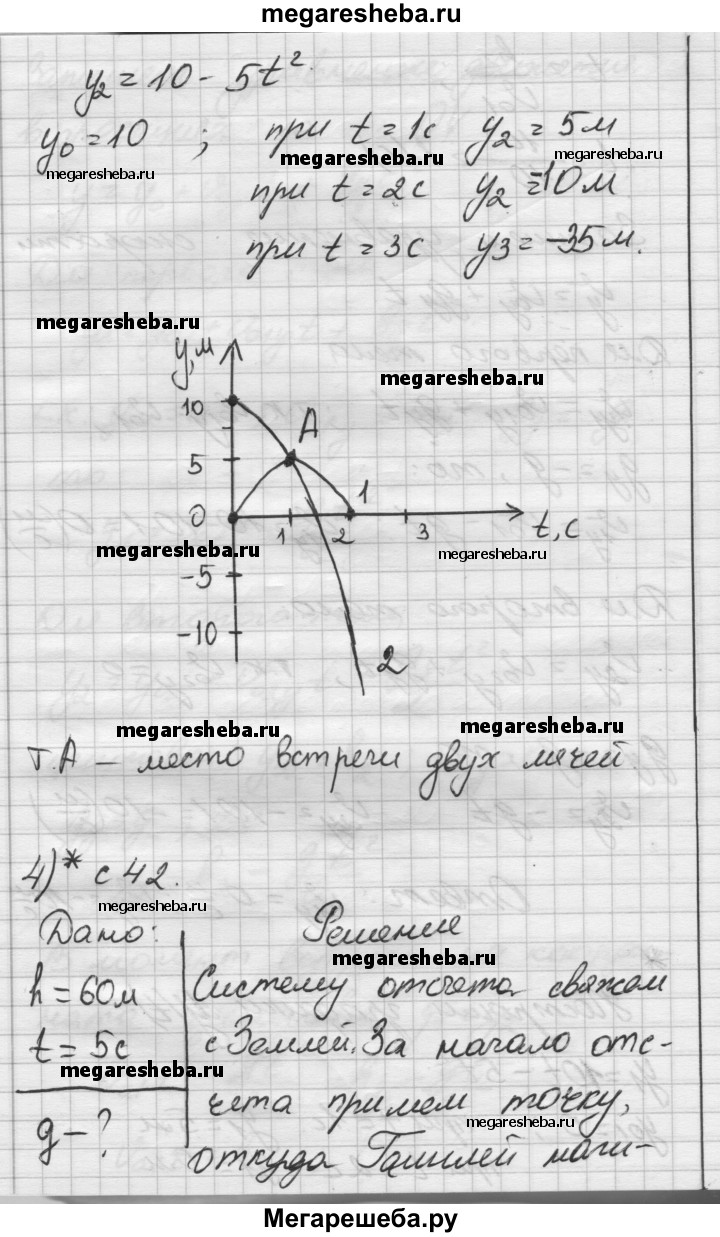 megaresheba.ru
y₂ = 10 - 5t².
y₀ = 10 ; при t = 1c y₂ = 5 м
megaresheba.ru megaresheba.ru megaresheba.ru
при t = 2c y₂ = -10 м
при t = 3c y3 = -35 м.
megaresheba.ru
y, м
megaresheba.ru
10
A
5
1
0 1 2 3 t, c
megaresheba.ru megaresheba.ru
-5
-10
2
megaresheba.ru megaresheba.ru
т. A – место встречи двух мячей
4)* c 42.
megaresheba.ru
Дано: Решение
megaresheba.ru
h = 60м Систему отсчета свяжем
t = 5c с Землей. За начало отс-
megaresheba.ru
g - ? чета примем точку,
megaresheba.ru
откуда Галилей начи-
Мегарешеба.ру